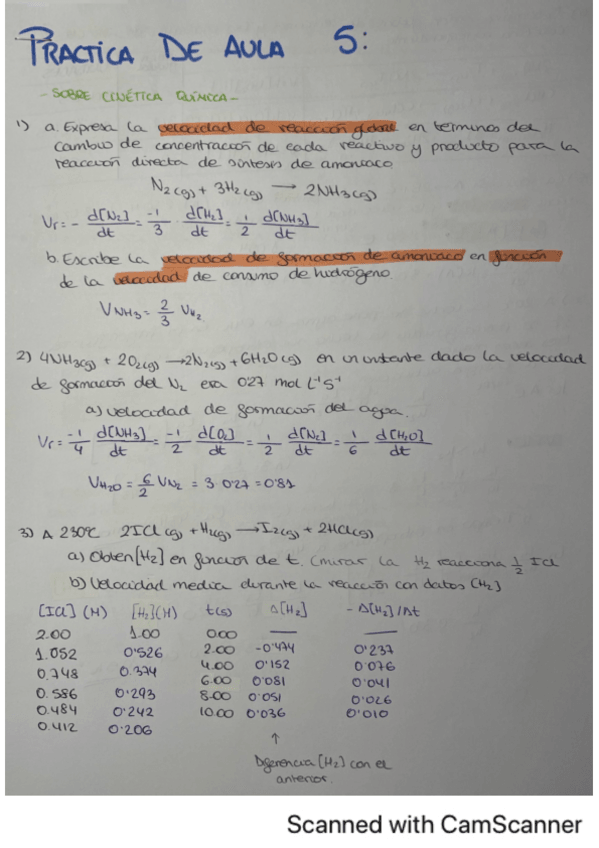 PRACTICA DE AULA 5:
- SOBRE CINÉTICA QUÍMICA -
1) a. Expresa la velocidad de reacción global en terminos del
cambio de concentración de cada reactivo y producto para la
reacción directa de sintesis de amoniaco
N2(g) + 3H2(g) → 2NH3(g)
Vr = - d[N2]/dt = -1/3 · d[H2]/dt = 1/2 d[NH3]/dt
b. Escribe la velocidad de formación de amoniaco en función
de la velocidad de consumo de hidrógeno
VNH3 = 2/3 VH2
2) 4NH3(g) + 2O2(g) → 2N2(g) + 6H2O(g) en un instante dado la velocidad
de formación del N2 era 0'27 mol L⁻¹ s⁻¹
a) velocidad de formación del agua.
Vr = -1/4 d[NH3]/dt = -1/2 d[O2]/dt = 1/2 d[N2]/dt = 1/6 d[H2O]/dt
VH2O = 6/2 VN2 = 3·0'27 = 0'81
3) A 230ºC 2ICl(g) + H2(g) → I2(g) + 2HCl(g)
a) Obten [H2] en función de t. (mirar la H2 reacciona 1/2 ICl
b) Velocidad media durante la reacción con datos [H2]
[ICl] (M) [H2](M) t(s) Δ[H2] - Δ[H2]/Δt
2.00 1.00 0.00 — —
1.052 0'526 2.00 -0'474 0'237
0.748 0.374 4.00 0'152 0'076
0.586 0'293 6.00 0'081 0'041
0.484 0'242 8.00 0'051 0'026
0.412 0'206 10.00 0'036 0'010
↑
Diferencia [H2] con el
anterior.
Scanned with CamScanner